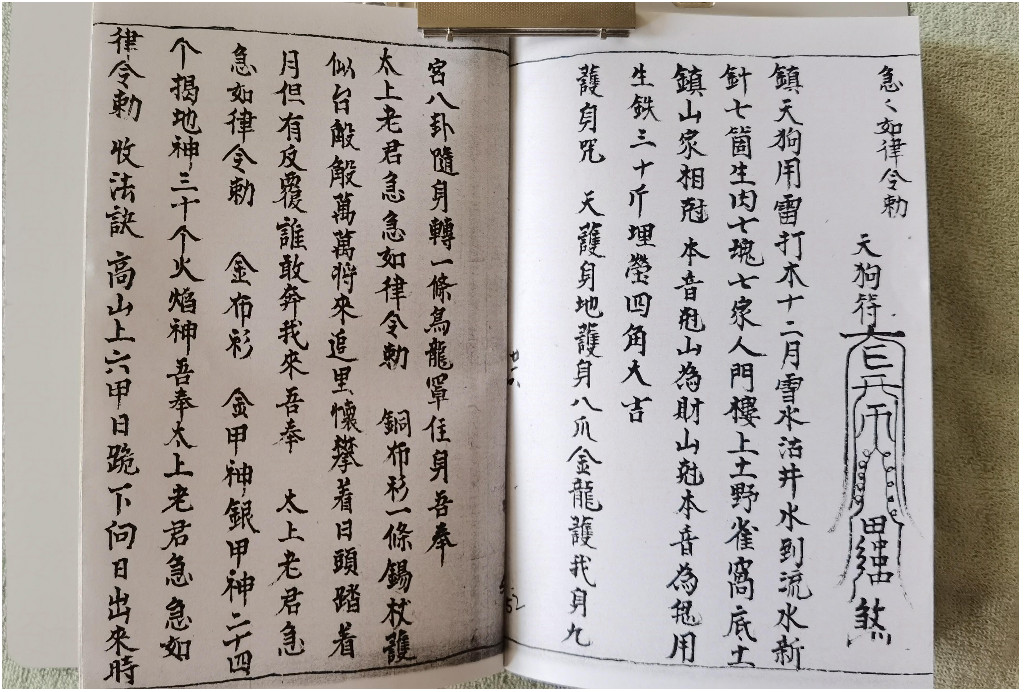 急〻如律令勅
天狗符
煞
鎮天狗用雷打木十二月雪水沽井水到流水新
針七箇生肉七塊七家人門樓上土野雀窩底土
鎮山家相尅 本音尅山為財山尅本音為鬼用
生鉄三十斤埋塋四角大吉
護身咒 天護身地護身八爪金龍護我身九
宮八卦隨身轉一條烏龍罩住身吾奉
太上老君急急如律令勅 銅布衫一條錫杖護
似台敵般萬萬將來追里懷攀着日頭踏着
月但有反覆誰敢奔我來吾奉 太上老君急
急如律令勅 金布衫 金甲神銀甲神二十四
个揭地神三十个火焰神吾奉太上老君急急如
律令勅 收法訣 高山上六甲日跪下向日出來時
廿六
52